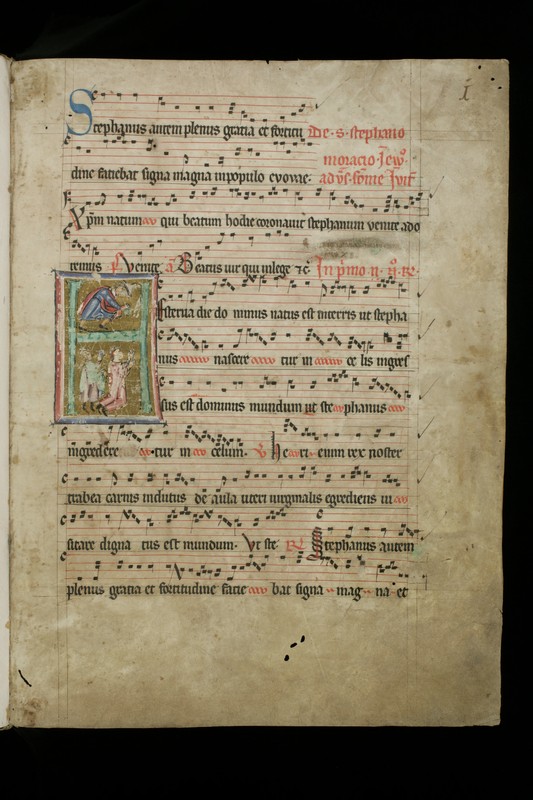 i
Stephanus autem plenus gratia et fortitu De · s · stephano
dine faciebat signa magna in populo evovae:
Xpm natum qui beatum hodie coronavit stephanum venite ado
remus ps Venite a Beatus vir qui in lege
Hesterna die do minus natus est in terris ut stepha
nus nascere tur in ce lis ingres
sus est dominus mundum ut ste phanus
ingredere tur in celum. V Heri enim rex noster
trabea carnis indutus de aula uteri virginalis egrediens vi
sitare digna tus est mundum. Ut ste. R Stephanus autem
plenus gratia et fortitudine facie bat signa mag na et